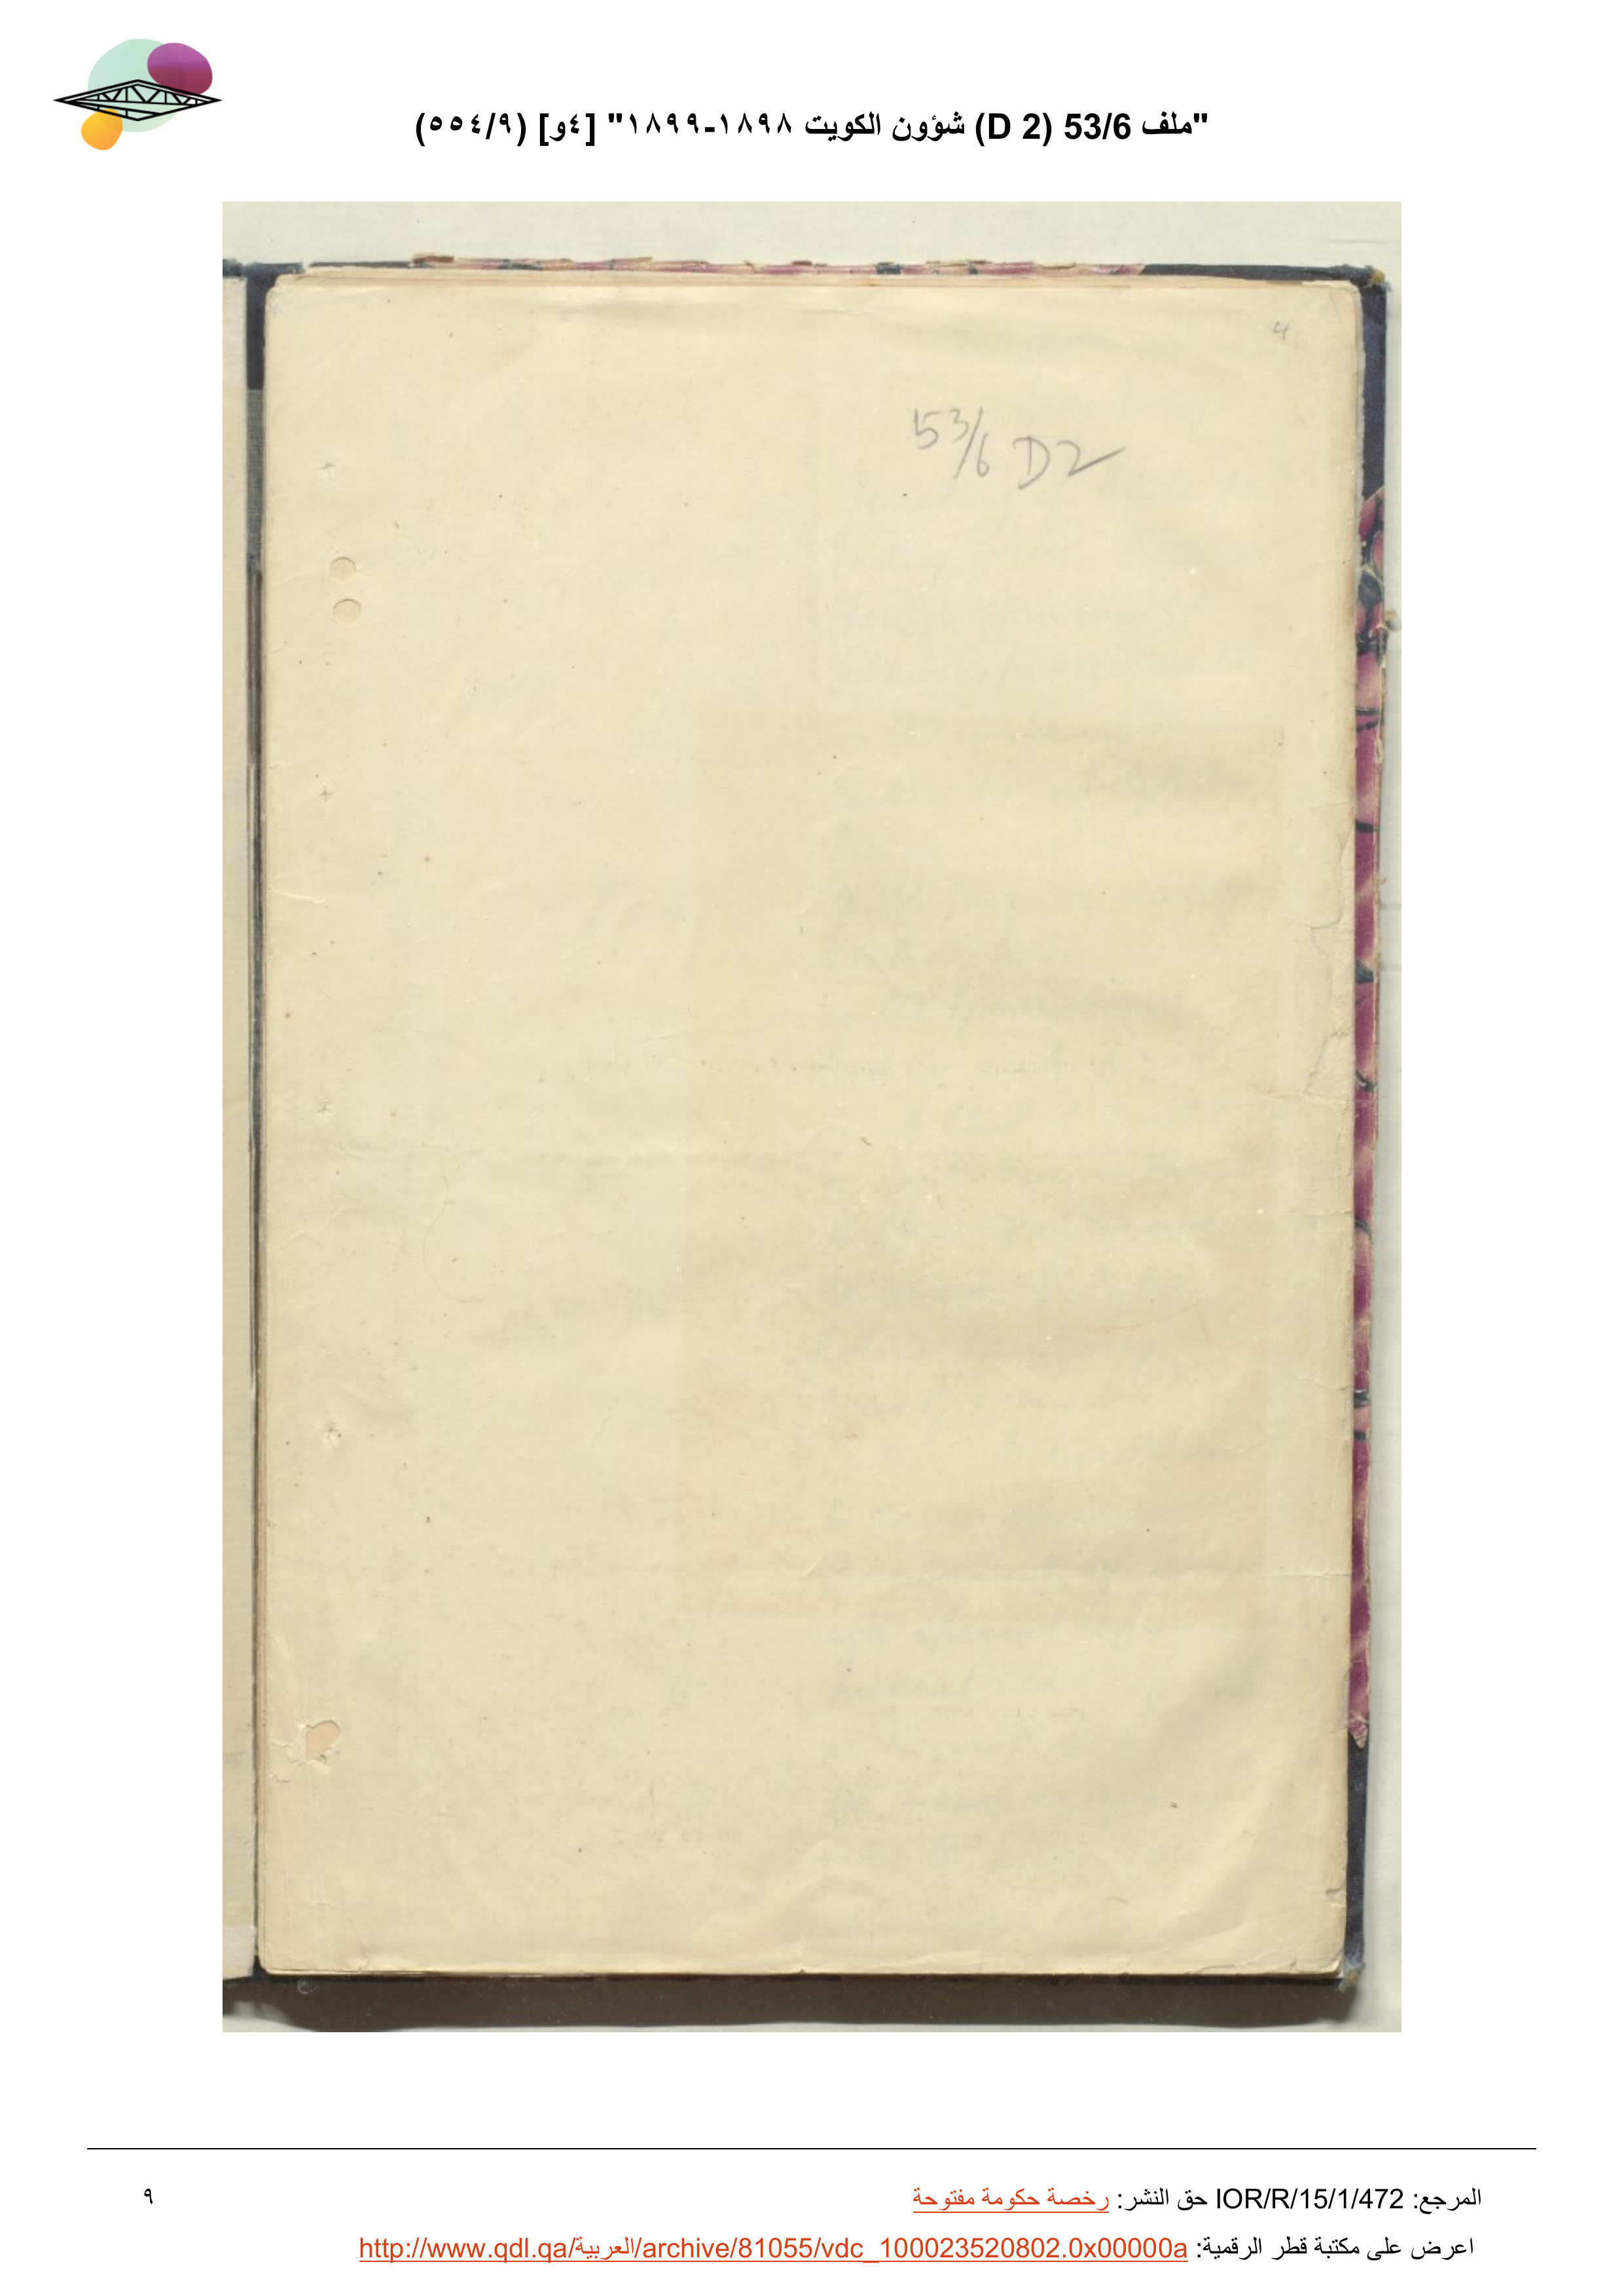 "ملف 53/6 (D 2) شؤون الكويت ١٨٩٨-١٨٩٩" [٤و] (٥٥٤/٩)
4
53/6 D2
المرجع: IOR/R/15/1/472 حق النشر: رخصة حكومة مفتوحة
٩
اعرض على مكتبة قطر الرقمية: http://www.qdl.qa/العربية/archive/81055/vdc_100023520802.0x00000a